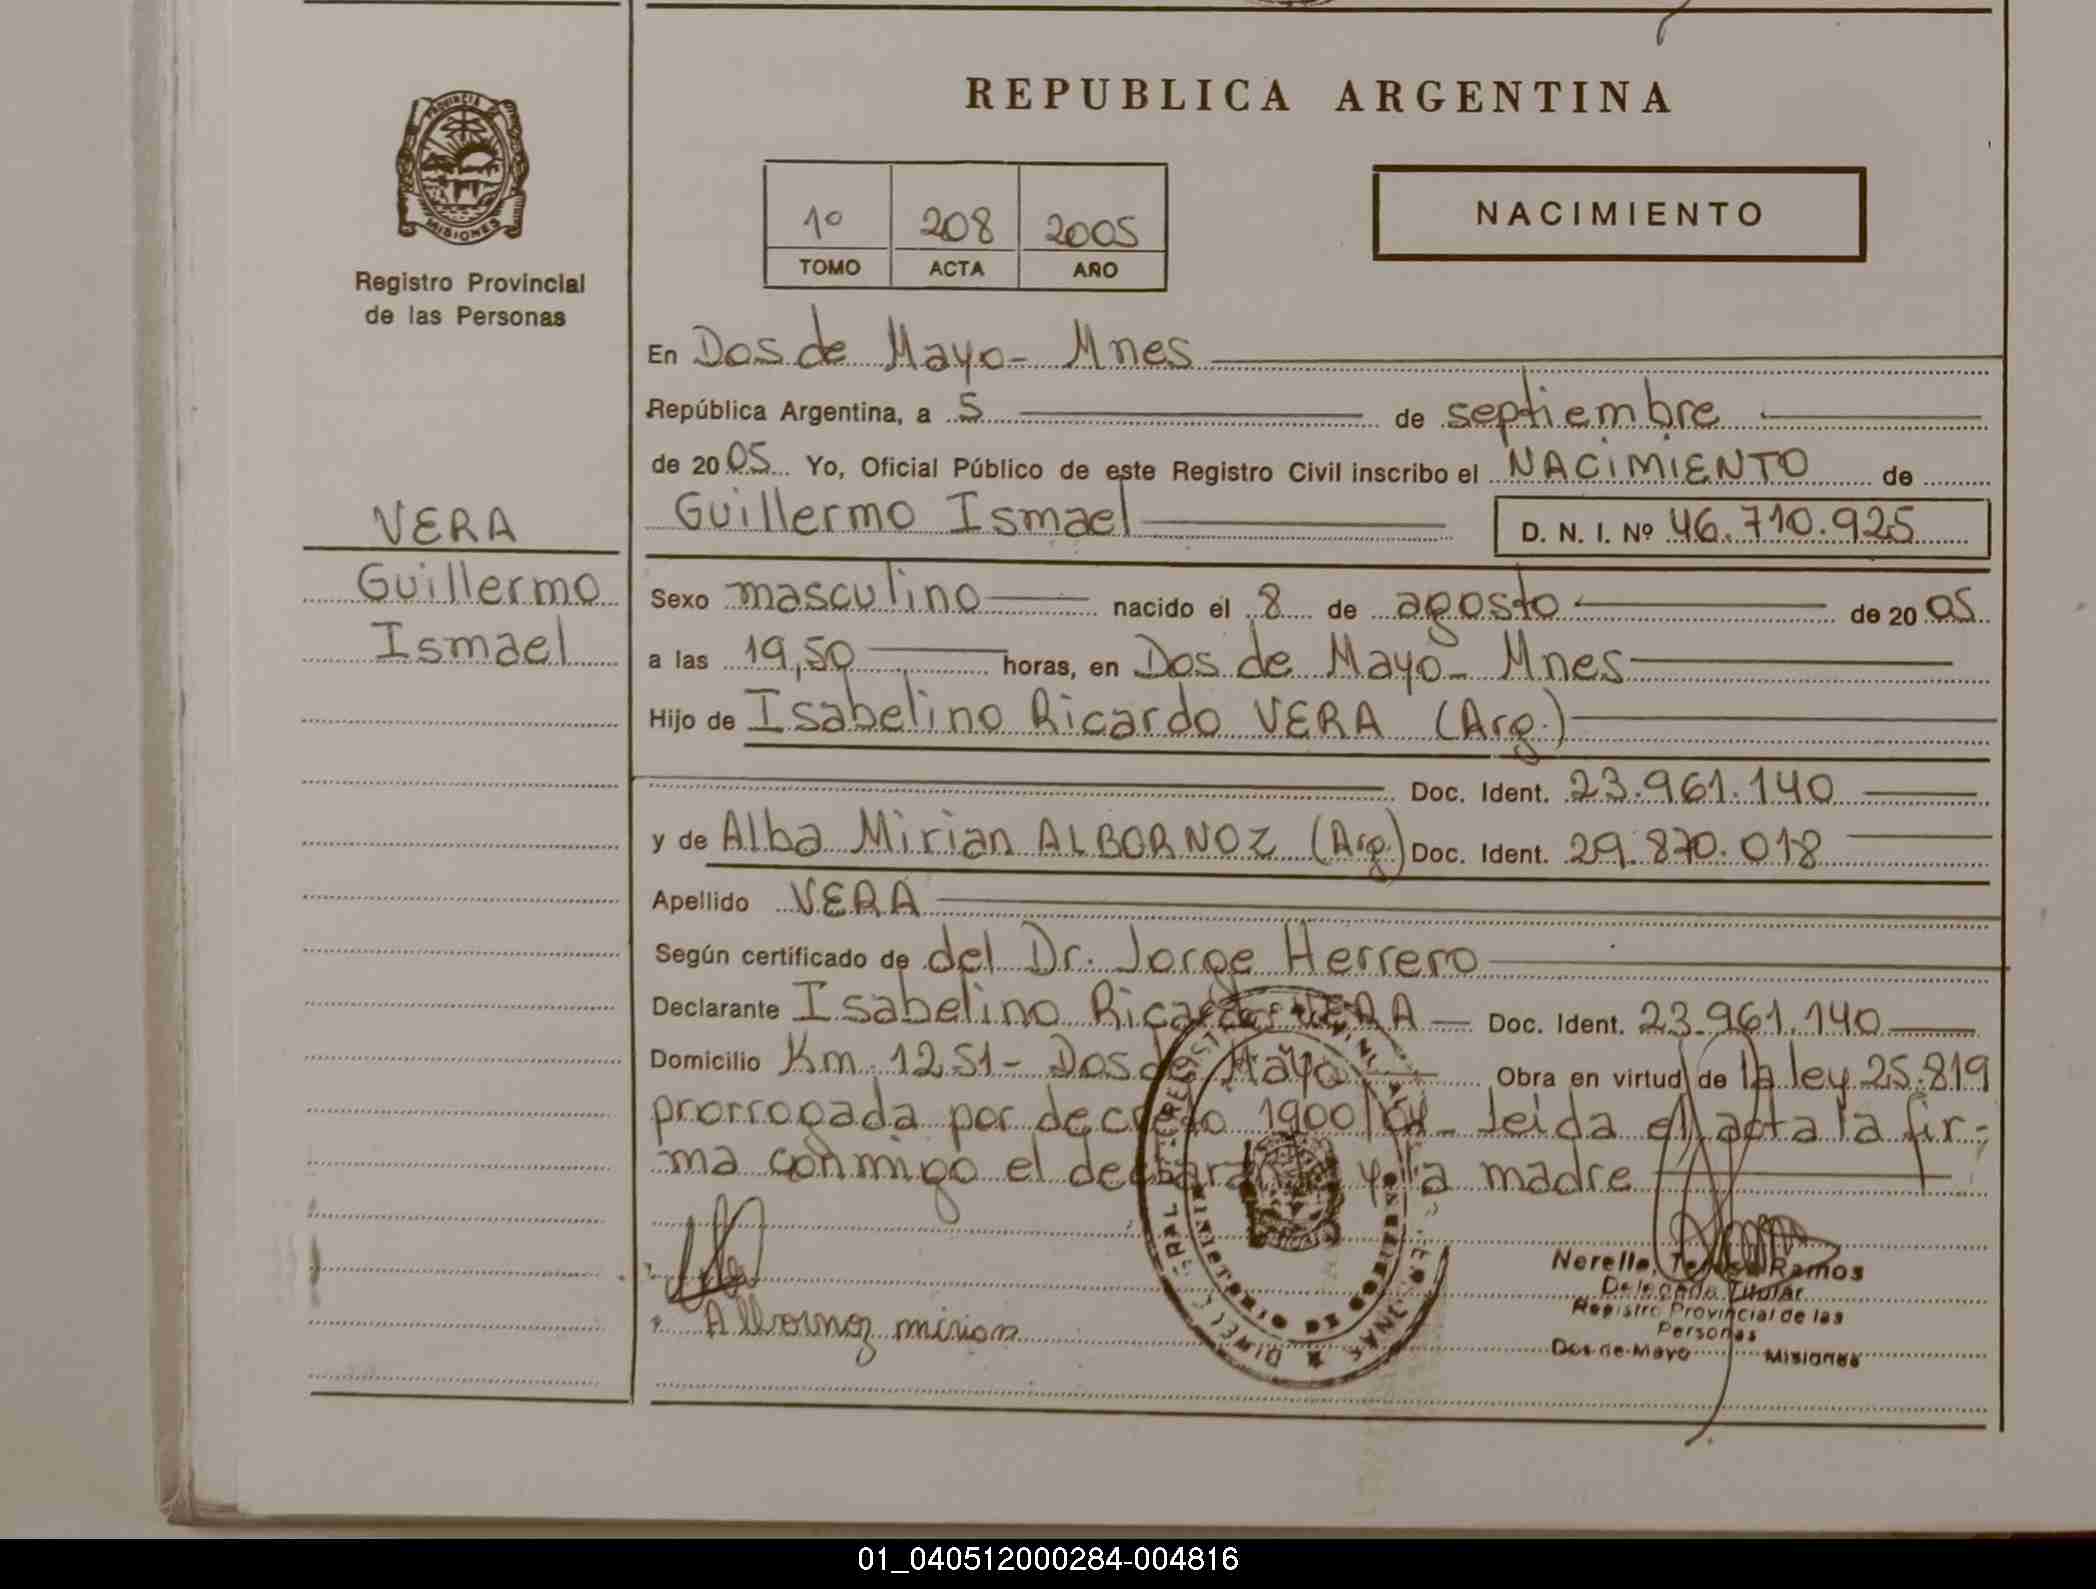 REPUBLICA ARGENTINA
PROVINCIA DE
MISIONES
Registro Provincial
de las Personas
1º 208 2005
TOMO ACTA AÑO
NACIMIENTO
En Dos de Mayo - Mnes
República Argentina, a 5 de septiembre
de 2005 Yo, Oficial Público de este Registro Civil inscribo el NACIMIENTO de
Guillermo Ismael D. N. I. Nº 46.710.925
VERA
Guillermo
Ismael
Sexo masculino nacido el 8 de agosto de 2005
a las 19,50 horas, en Dos de Mayo - Mnes
Hijo de Isabelino Ricardo VERA (Arg.)
Doc. Ident. 23.961.140
y de Alba Mirian ALBORNOZ (Arg.) Doc. Ident. 29.870.018
Apellido VERA
Según certificado de del Dr. Jorge Herrero
Declarante Isabelino Ricardo VERA - Doc. Ident. 23.961.140
Domicilio Km. 1251 - Dos de Mayo Obra en virtud de la ley 25.819
prorrogada por decreto 1900/04 - leida el acta la fir-
ma conmigo el declarante y la madre
Albornoz mirian
Ramos
Delegada Titular
Registro Provincial de las
Personas
Dos de Mayo Misiones
01_040512000284-004816